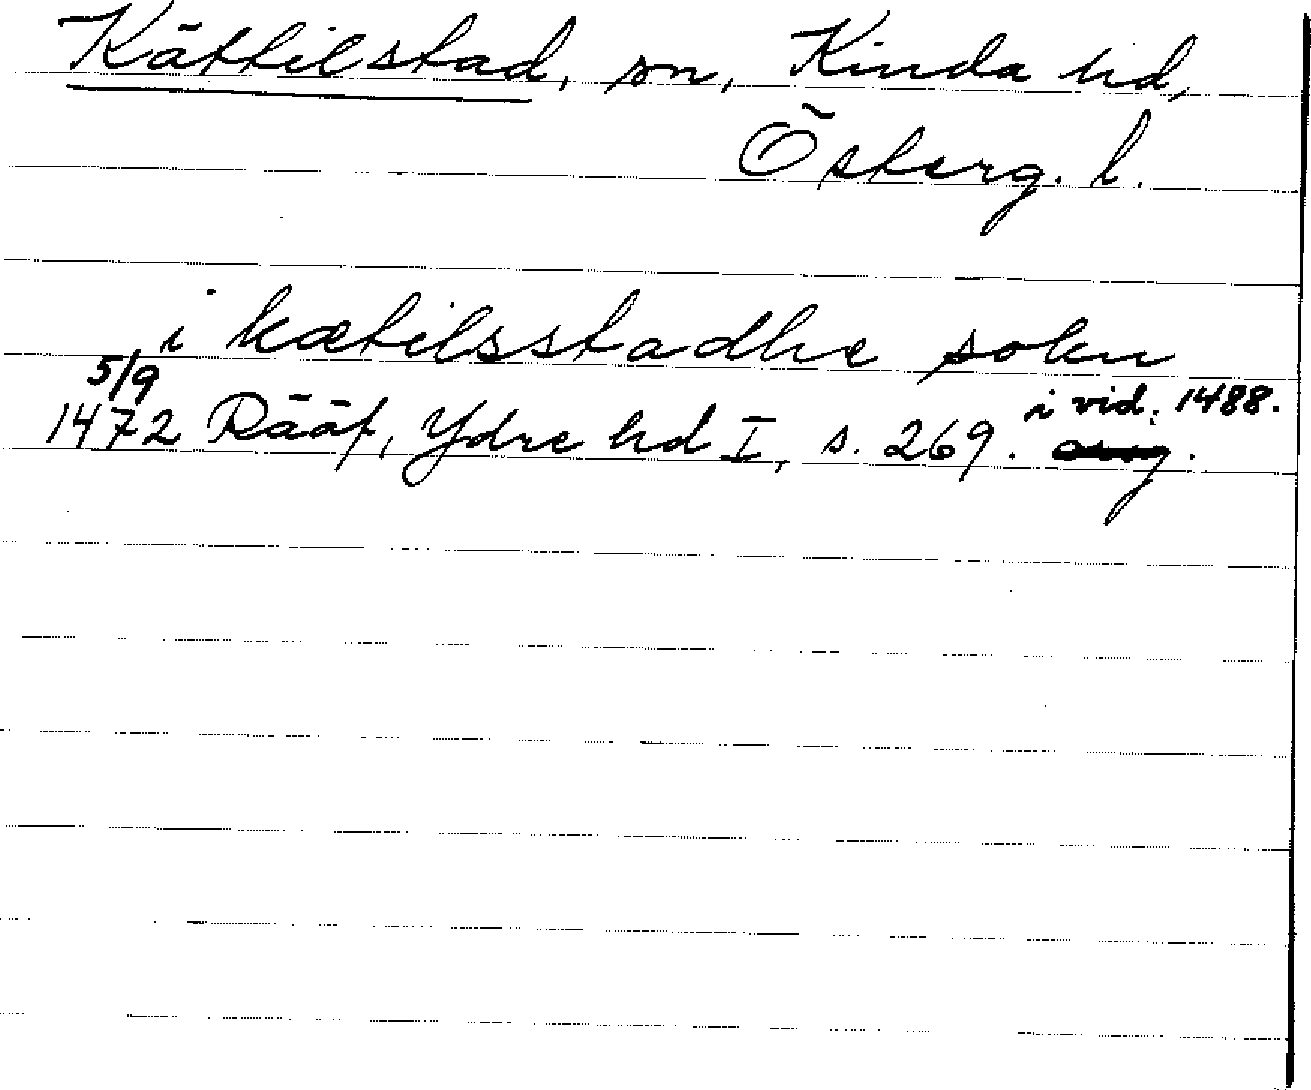 Kättilstad, sn, Kinda hd,
Österg. l.
i kætilsstadhe sokn
5/9
1472 Rääf, Ydre hd I, s. 269. i vid. 1488.